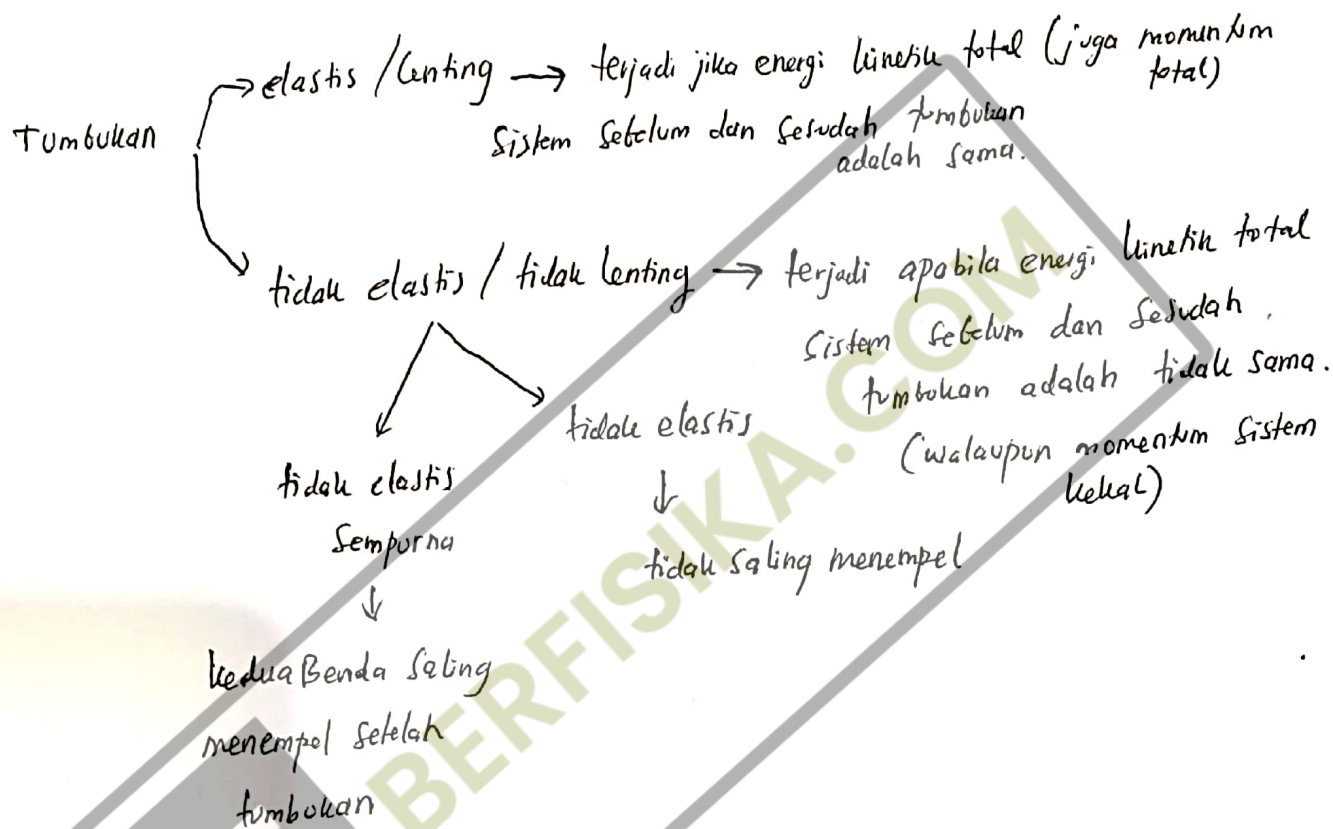 Tumbukan
elastis / lenting → terjadi jika energi kinetik total (juga momentum
total)
Sistem Sebelum dan Sesudah tumbukan
adalah sama.
tidak elastis / tidak lenting → terjadi apabila energi kinetik total
Sistem Sebelum dan Sesudah
tumbukan adalah tidak sama.
(walaupun momentum Sistem
kekal)
tidak elastis
Sempurna
↓
kedua Benda Saling
menempel Setelah
tumbukan
tidak elastis
↓
tidak Saling menempel
BERFISIKA.COM